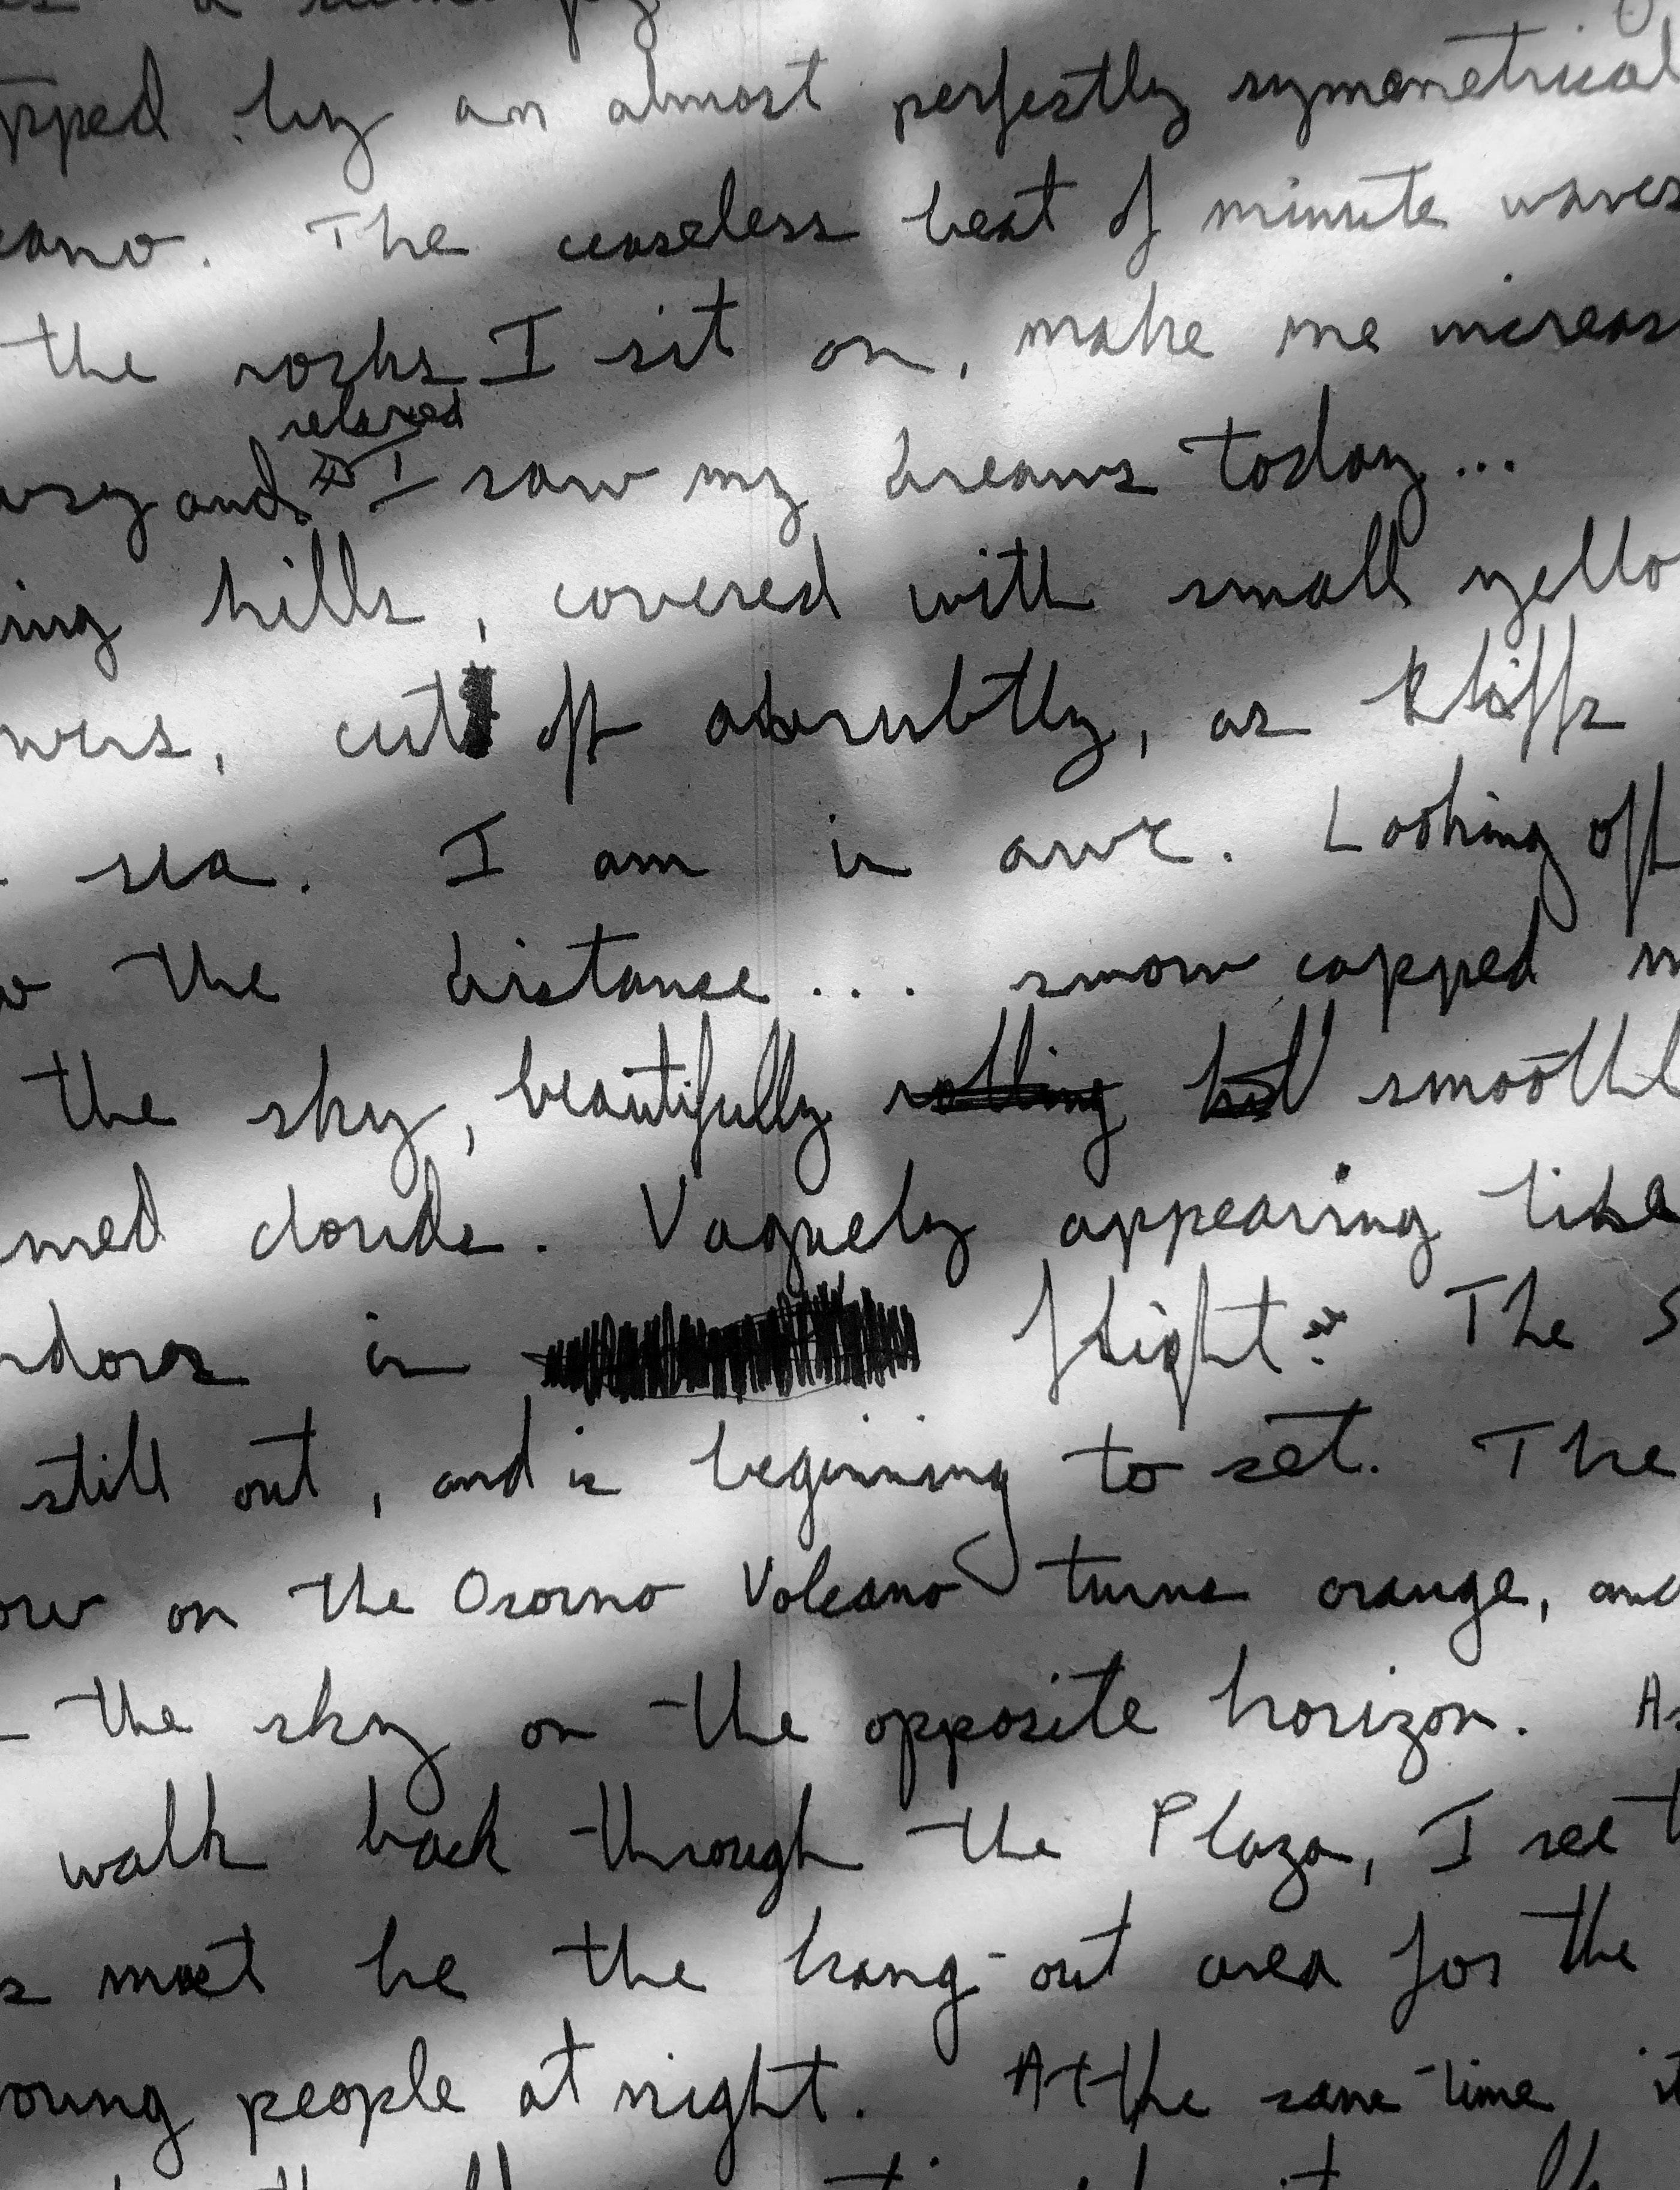 pped by an almost perfectly symmetrical
cano. The ceaseless beat of minute waves
the rocks I sit on, make me increas
relaxed
wsy and I saw my dreams today...
ing hills, covered with small yello
wers, cut off abrubtly, as kliffs
sea. I am in awe. Looking off
o the distance... snow capped m
the sky, beautifully rolling smoothl
med clouds. Vaguely appearing like
ndors in flight. The s
still out, and is beginning to set. The
ow on the Osorno Volcano turns orange, and
the sky on the opposite horizon. As
walk back through the Plaza, I see t
s must be the hang-out area for the
oung people at night. At the same time it